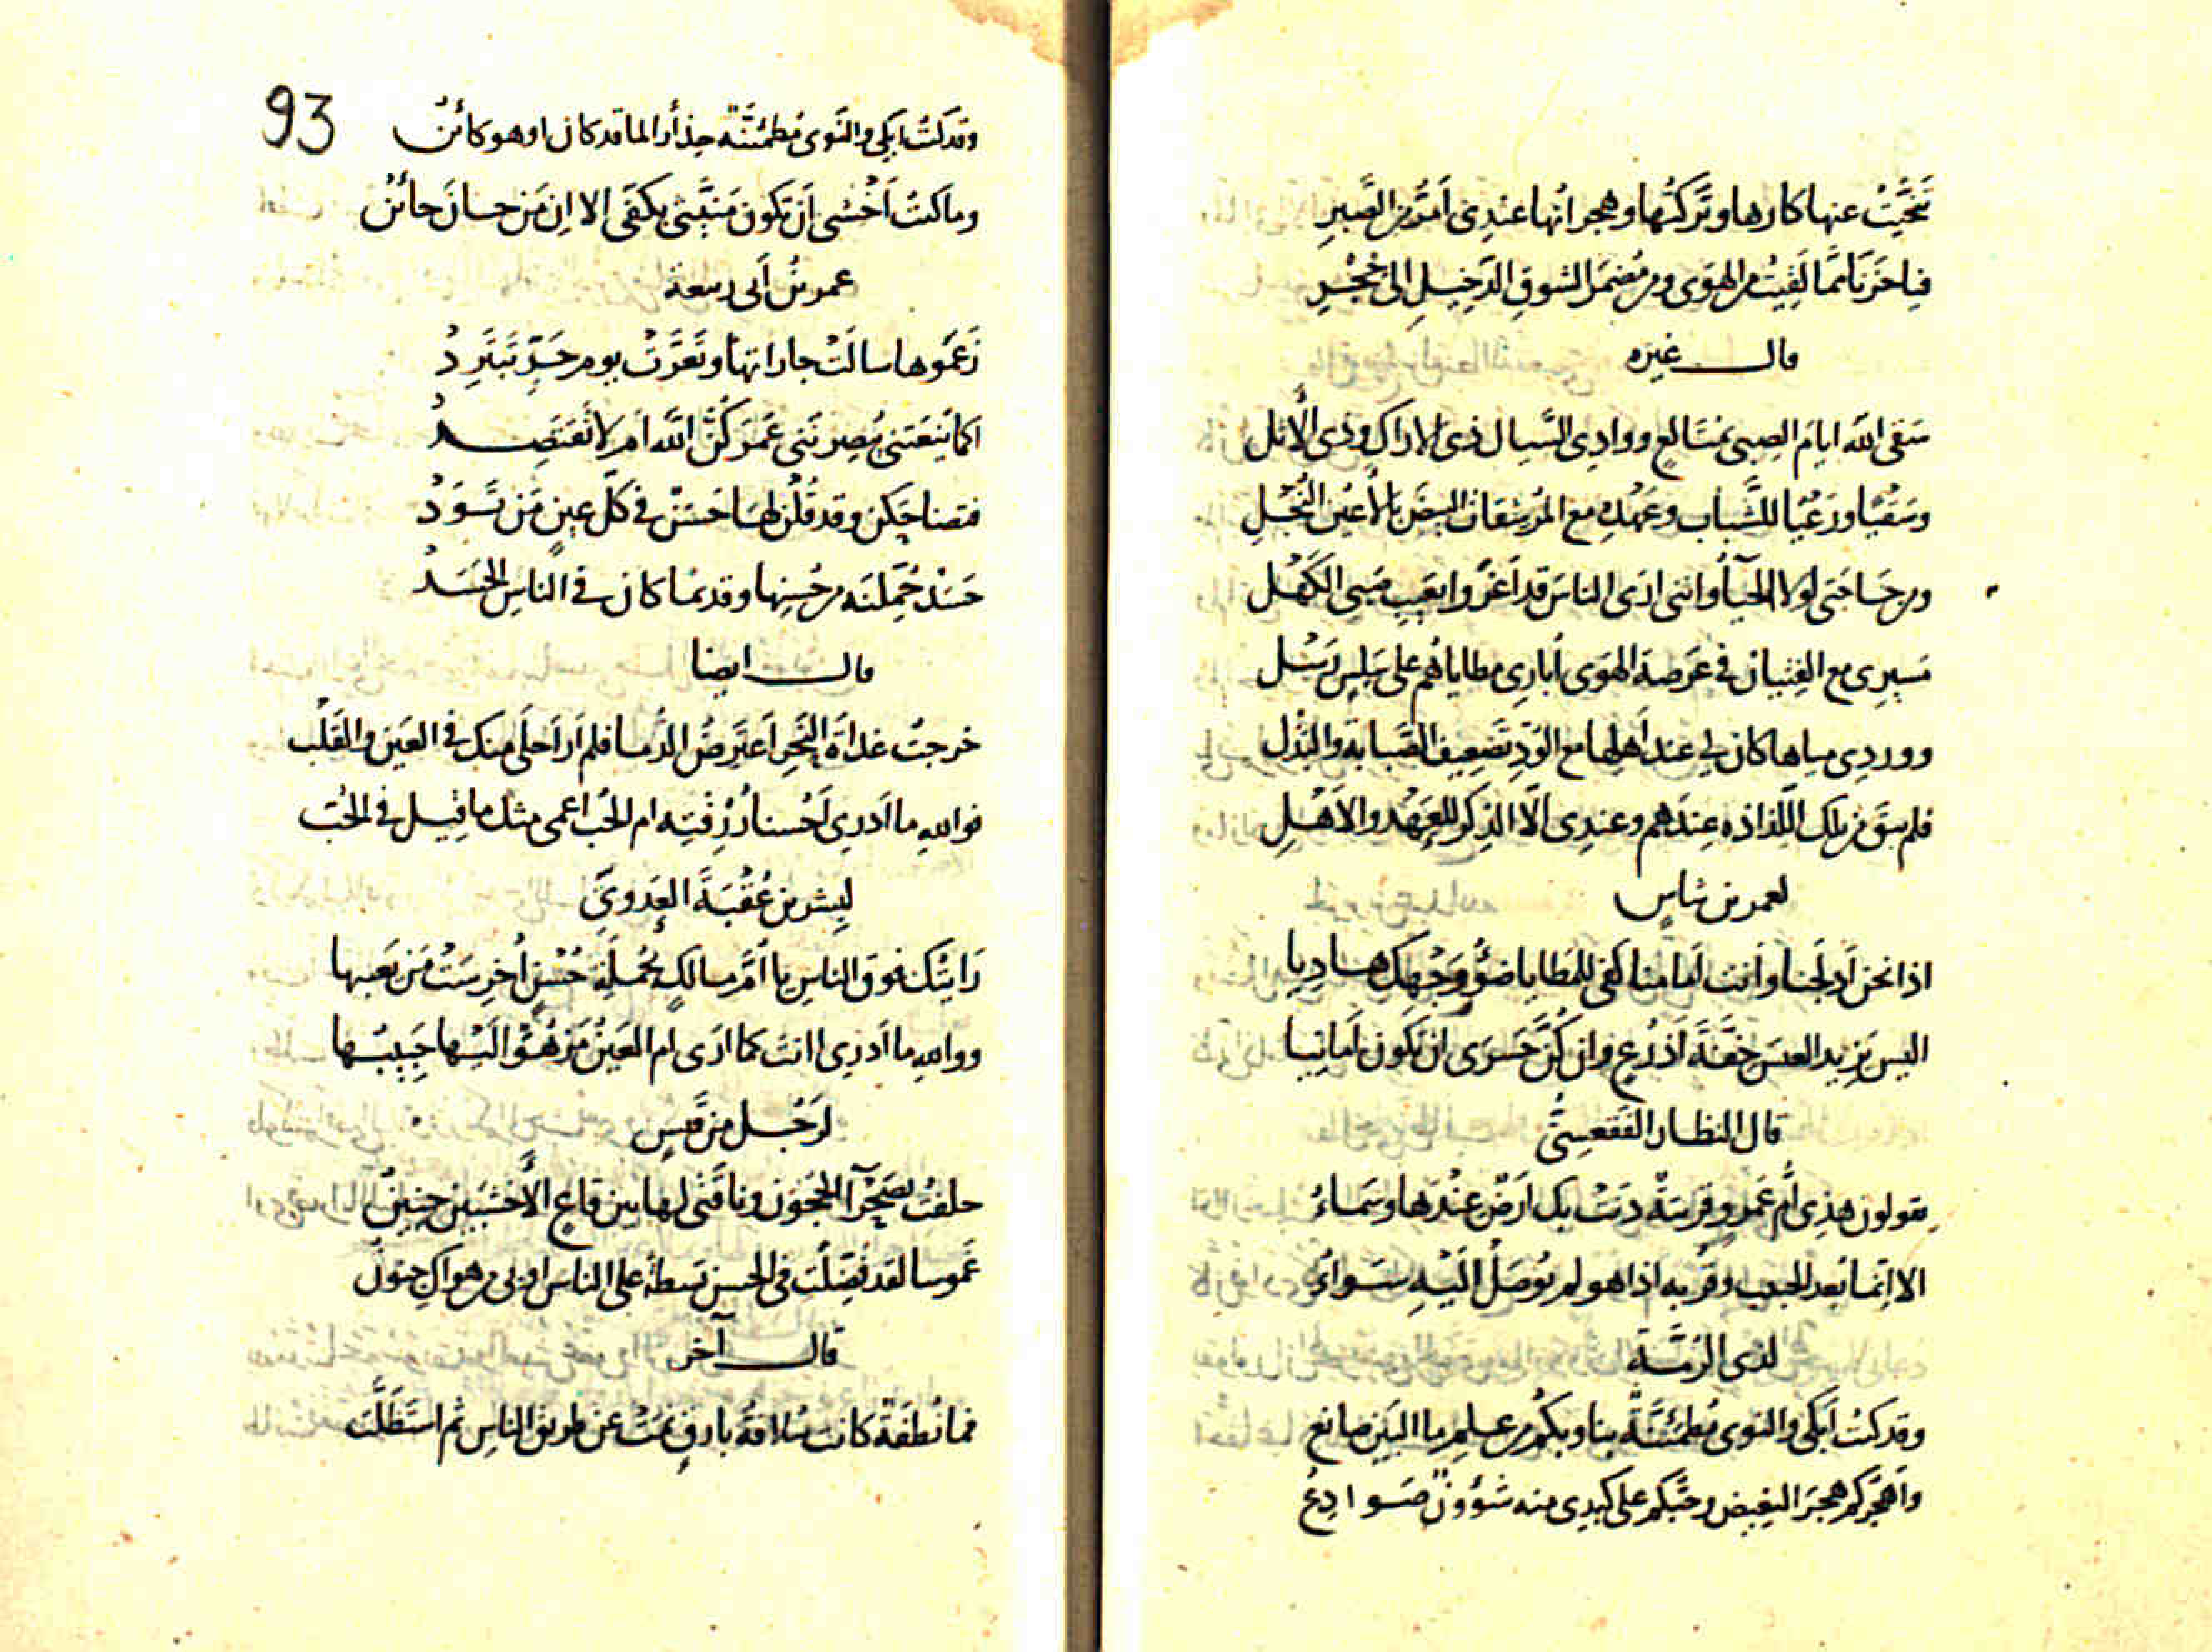 تجنبت عنها كارها وتركتها وهجرانها عندى أمر من الصبر
فيا حزنا مما لقيت من الهوى ومن مضمر الشوق الدخيل الى حجر
قال غيره
سقى الله ايام الصبى بمتالع ووادى السيال ذى الاراك وذى الأثل
وسقيا ورعيا للشباب وعهده مع المرشقات البيض بالأعين النجل
ومرحبا حتى لولا الحياء وانني ارى الناس قد اغروا بعيب صبى الكهل
مسيرى مع الفتيان فى عرصة الهوى أبارى مطاياهم على سلس رسل
ووردى مياها كان لى عند اهلها مع الود تضعيف الصبابة والبذل
فلم يبق من تلك اللذاذه عندهم وعندى الا الذكر للعهد والأهل
لعمرو بن شاس
اذا نحن أدلجنا وأنت أمامنا كفى للمطايا ضوء وجهك هاديا
اليس يزيد العيس خفة أذرع وان كن حسرى ان تكون أمانيا
قال النظار الفقعسى
يقولون هذى أم عمرو قريبة دنت بك أرض عندها وسماء
الا انما بعد الحبيب وقربه اذا هو لم يوصل اليه سواء
لذى الرمة
وقد كنت أبكى والنوى مطمئنة بنا وبكم من علم ما البين صانع
وأهجركم هجر البغيض وحبكم على كبدى منه شؤون صوادع
93
وقد كنت أبكى والنوى مطمئنة حذارا لما قد كان او هو كائن
وما كنت أخشى أن تكون منيتى بكفى الا ان من حان حائن
عمر بن أبى ربيعة
زعموها سالت جاراتها وتعرت يوم حر تبترد
اكما ينعتنى تبصرننى عمركن الله أم لا يقتصد
فتضاحكن وقد قلن لها حسن فى كل عين من تود
حسد حملنه من حسنها وقديما كان فى الناس الحسد
قال ايضا
خرجت غداة النحر أعترض الدما فلم أر أحلى منك فى العين والقلب
فوالله ما أدرى أحسنا رزقته ام الحب اعمى مثل ما قيل فى الحب
لبشر بن عقبة العدوى
رايتك فوق الناس يا أم مالك بجملة حسن أخرست من يعيبها
ووالله ما أدرى اانت كما ارى ام العين مزهو اليها حبيبها
لرجل من قيس
حلفت بصحراء الحجون وناقتى لها بين قاع الأخشبين حنين
غموسا لقد فضلت فى الحسن بسطة على الناس او بى من هواك جنون
قال آخر
فما نطفة كانت سلافة بارق نمت عن طريق الناس ثم استظلت